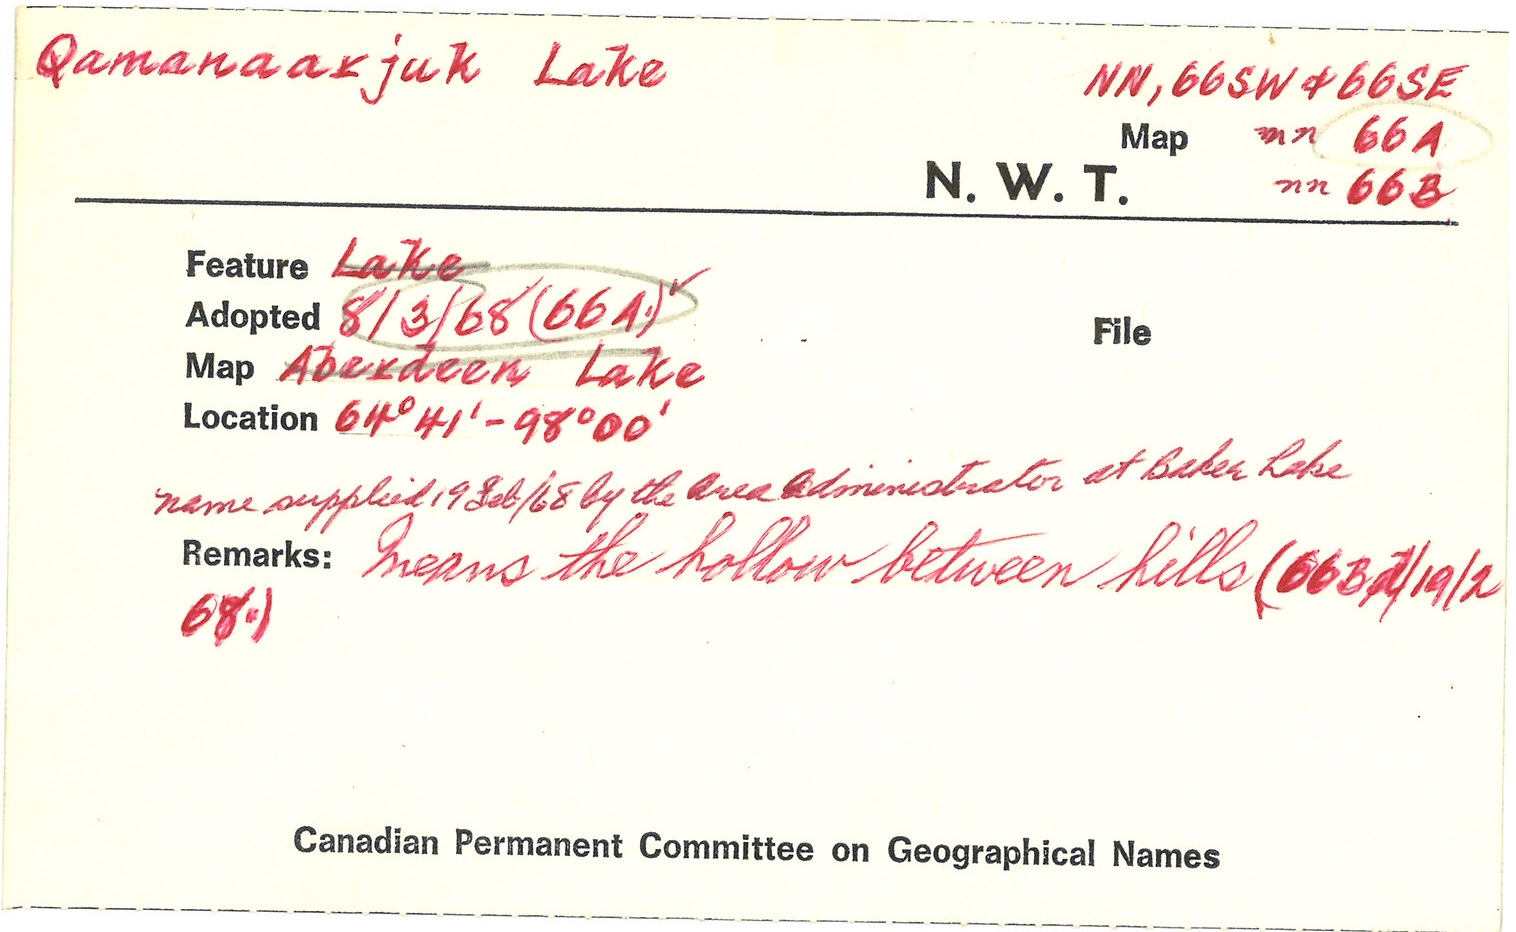 Qamanaarjuk Lake
NN, 66SW & 66SE
Map nn 66A
N. W. T. nn 66B
Feature Lake
Adopted 8/3/68 (66A.) ✓
File
Map Aberdeen Lake
Location 64°41' - 98°00'
name supplied 19 Feb/68 by the Area Administrator at Baker Lake
Remarks: Means the hollow between hills (66B /19/2
68.)
Canadian Permanent Committee on Geographical Names